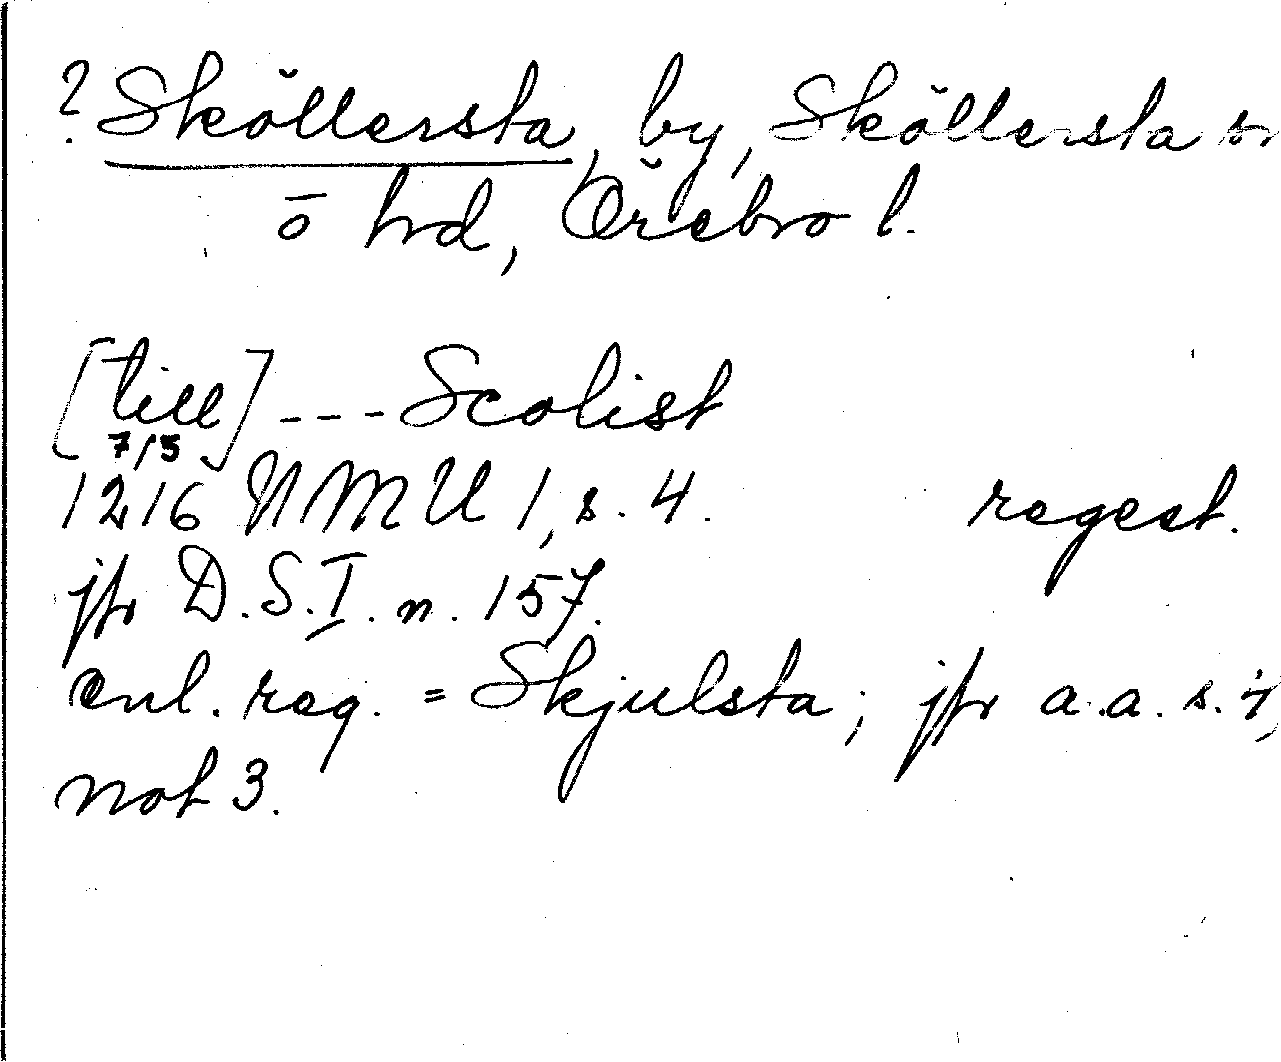 ? Sköllersta, by, Sköllersta sn
ō hrd, Örebro l.
[till] --- Scolist
7/5
1216 NMU 1, s. 4. regest.
jfr D.S. I. n. 157.
enl. reg. = Skjulsta; jfr a.a. s. 4,
not 3.